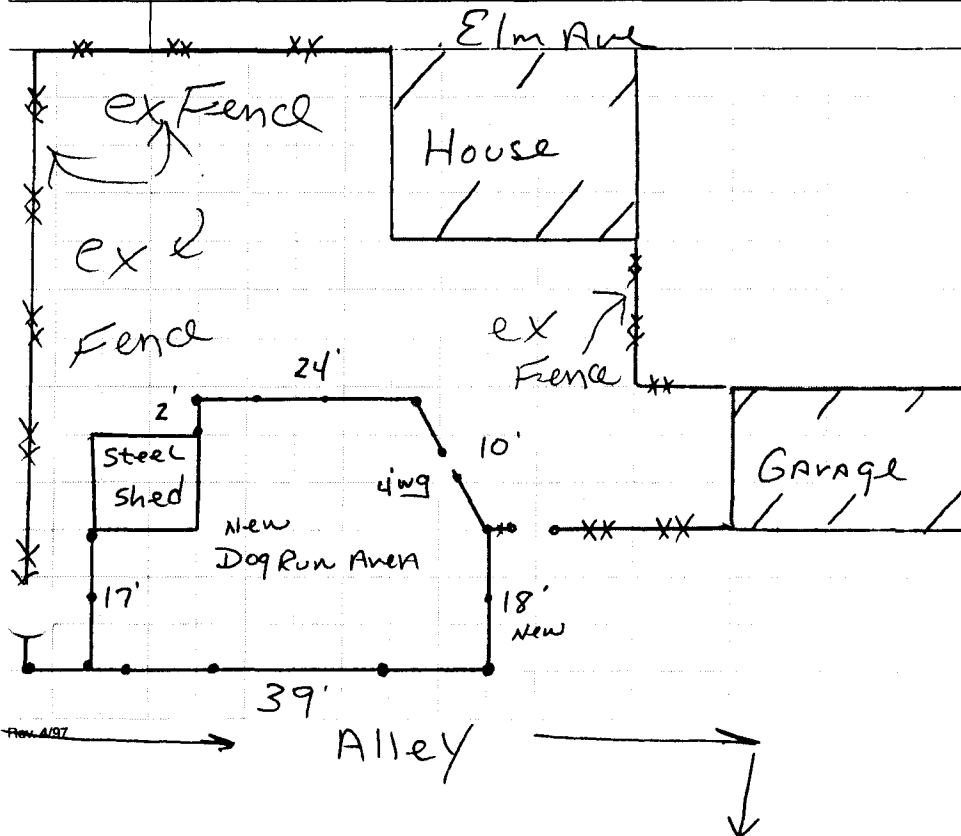 Elm Ave
ex Fence
House
ex
Fence
ex
Fence
24'
2'
10'
Steel
Shed
4'wg
GARAGE
New
Dog Run Area
17'
18'
New
39'
Rev. 4/97
Alley